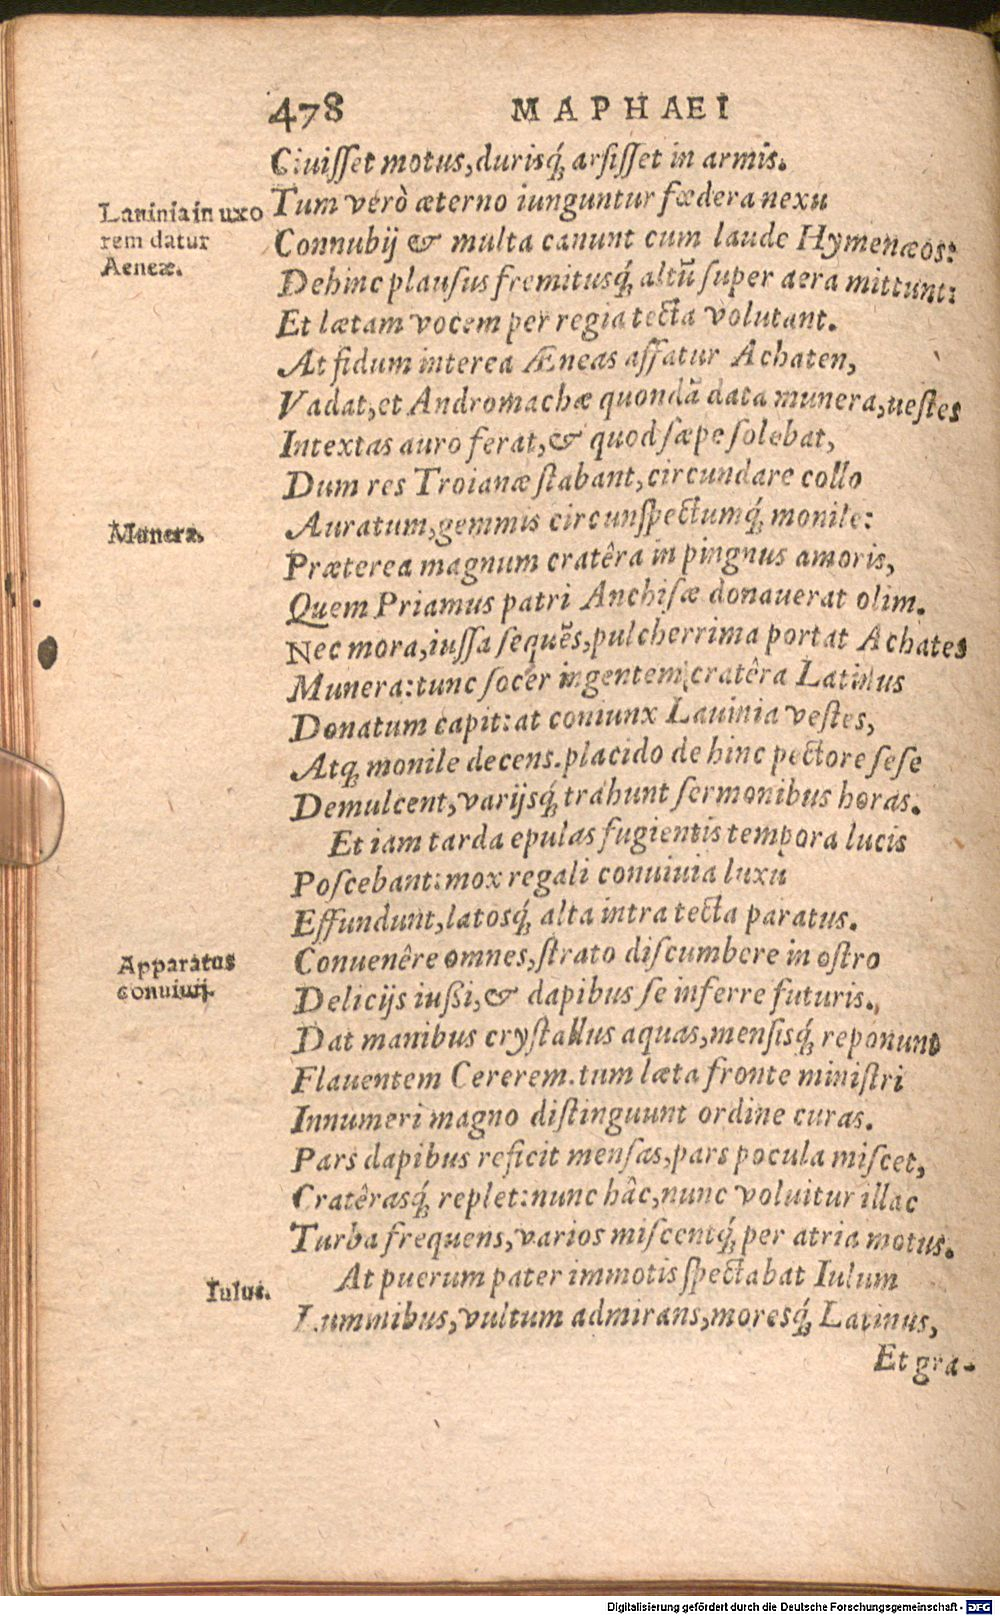 478 MAPHAEI
Ciuiſſet motus, durisq́; arſiſſet in armis.
Tum verò æterno iunguntur fœdera nexu
Lauinia in uxo
rem datur
Aeneæ.
Connubij & multa canunt cum laude Hymenæos:
Dehinc plauſus fremitusq́; altũ ſuper aera mittunt:
Et lætam vocem per regia tecta volutant.
At fidum interea Æneas affatur Achaten,
Vadat, et Andromachæ quondã data munera, ueſtes
Intextas auro ferat, & quod ſæpe ſolebat,
Dum res Troianæ ſtabant, circundare collo
Auratum, gemmis circunſpectumq́; monile:
Munera.
Præterea magnum cratêra in pingnus amoris,
Quem Priamus patri Anchiſæ donauerat olim.
Nec mora, iuſſa ſequẽs, pulcherrima portat Achates
Munera: tunc ſocer ingentem cratêra Latinus
Donatum capit: at coniunx Lauinia veſtes,
Atq; monile decens. placido de hinc pectore ſeſe
Demulcent, varijsq́; trahunt ſermonibus horas.
Et iam tarda epulas fugientis tempora lucis
Poſcebant: mox regali conuiuia luxu
Effundunt, latosq́; alta intra tecta paratus.
Conuenêre omnes, ſtrato diſcumbere in oſtro
Apparatus
conuiuij.
Delicijs iuſsi, & dapibus ſe inferre futuris.
Dat manibus cryſtallus aquas, menſisq́; reponunt
Flauentem Cererem. tum læta fronte miniſtri
Innumeri magno diſtinguunt ordine curas.
Pars dapibus reficit menſas, pars pocula miſcet,
Cratêrasq́; replet: nunc hâc, nunc voluitur illac
Turba frequens, varios miſcentq́; per atria motus.
At puerum pater immotis ſpectabat Iulum
Iulus.
Luminibus, vultum admirans, moresq́; Latinus,
Et gra-
Digitalisierung gefördert durch die Deutsche Forschungsgemeinschaft - DFG